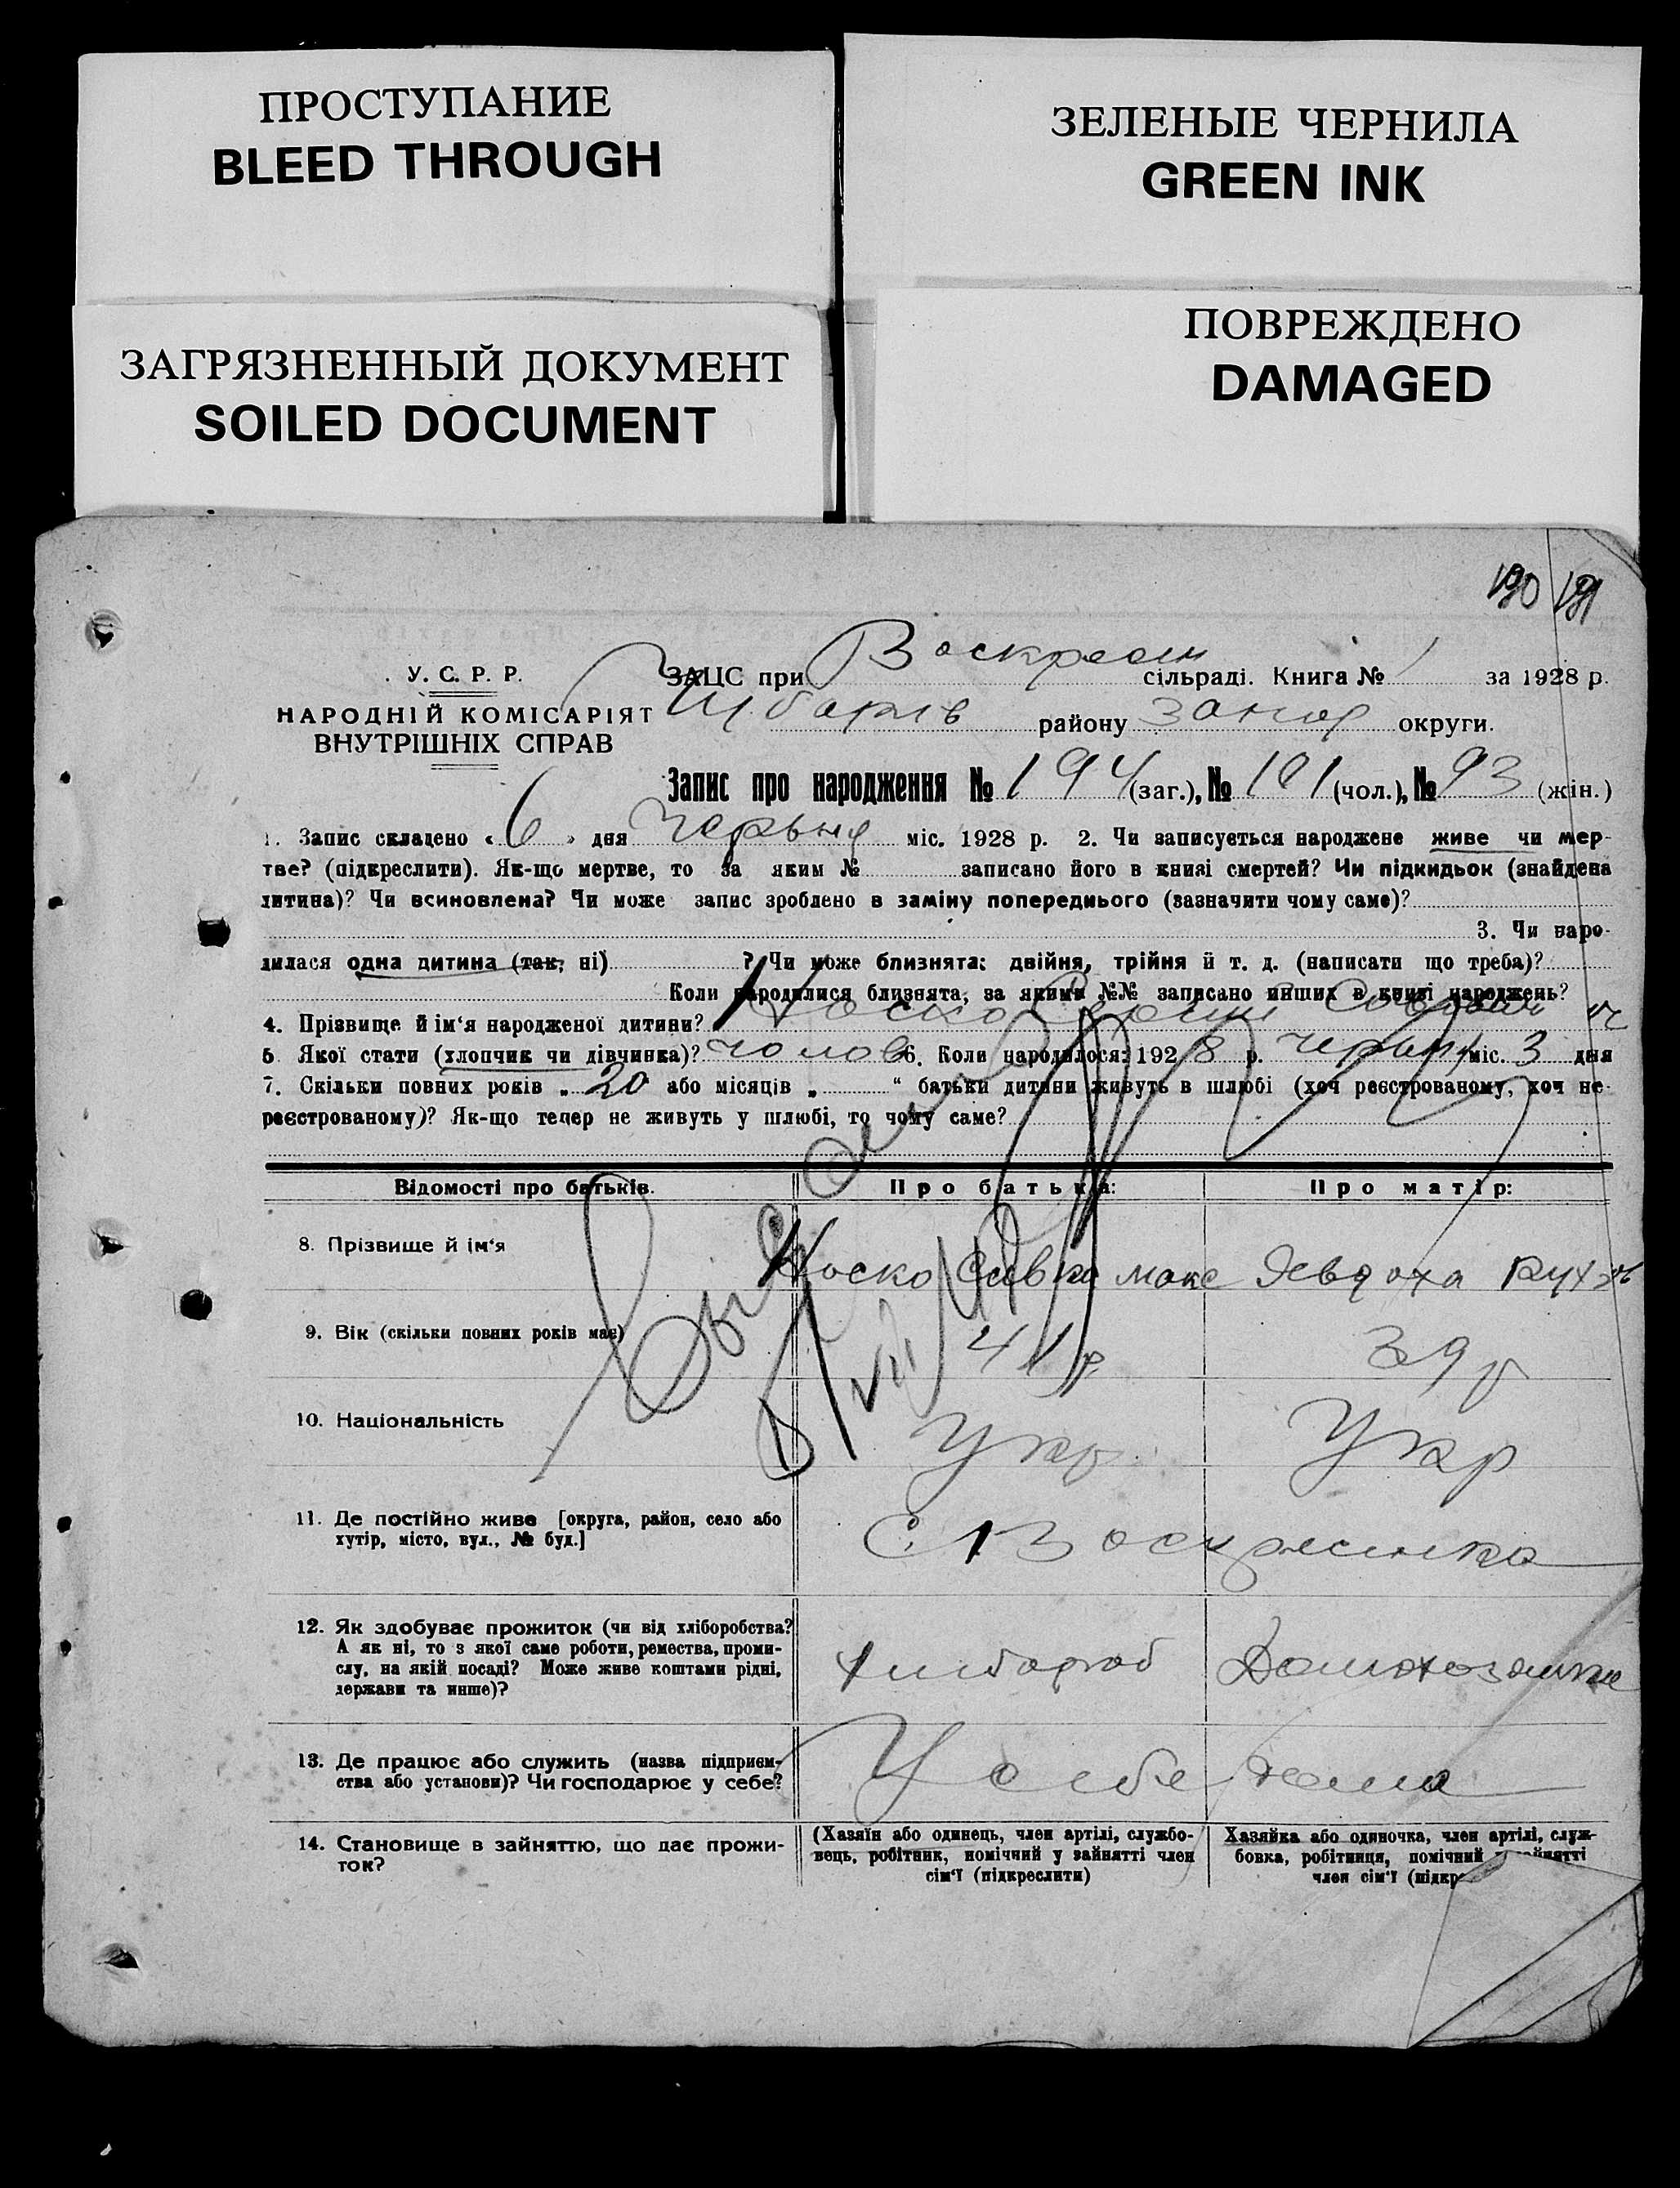 ПРОСТУПАНИЕ
BLEED THROUGH
ЗЕЛЕНЫЕ ЧЕРНИЛА
GREEN INK
ЗАГРЯЗНЕННЫЙ ДОКУМЕНТ
SOILED DOCUMENT
ПОВРЕЖДЕНО
DAMAGED
190 191
У. С. Р. Р.
НАРОДНІЙ КОМІСАРІЯТ
ВНУТРІШНІХ СПРАВ
ЗАЦС при Воскресен сільраді. Книга № 1 за 1928 р.
району Запор округи.
Запис про народження № 194 (заг.), № 101 (чол.), № 93 (жін.)
1. Запис складено « 6 » дня червня міс. 1928 р. 2. Чи записується народжене живе чи мер-
тве? (підкреслити). Як-що мертве, то за яким № записано його в книзі смертей? Чи підкидьок (знайдена
дитина)? Чи всиновлена? Чи може запис зроблено в заміну попереднього (зазначити чому саме)?
3. Чи наро-
дилася одна дитина (так, ні) ? Чи може близнята: двійня, трійня й т. д. (написати що треба)?
Коли народилися близнята, за якими №№ записано инших в книзі народжень?
4. Прізвище й ім'я народженої дитини? Носко
5. Якої стати (хлопчик чи дівчинка)? чолов 6. Коли народилося: 1928 р. червня міс. 3 дня
7. Скільки повних років „ 20 або місяців „ “ батьки дитини живуть в шлюбі (хоч реєстрованому, хоч не-
реєстрованому)? Як-що тепер не живуть у шлюбі, то чому саме?
Відомості про батьків. Про батька: Про матір:
8. Прізвище й ім'я Носко Савка Макс Явдоха
9. Вік (скільки повних років має) 41 р. 39 р
10. Національність Укр Укр
11. Де постійно живе [округа, район, село або
хутір, місто, вул., № буд.] С. Воскресенка
12. Як здобуває прожиток (чи від хліборобства?
А як ні, то з якої саме роботи, ремества, проми-
слу, на якій посаді? Може живе коштами рідні,
держави та инше)? Хлібороб
13. Де працює або служить (назва підприєм-
ства або установи)? Чи господарює у себе? У себе дома
14. Становище в зайняттю, що дає прожи-
ток?
(Хазяїн або одинець, член артілі, службо-
вець, робітник, помічний у зайнятті член
сім'ї (підкреслити)
Хазяйка або одиночка, член артілі, служ-
бовка, робітниця, помічний у зайнятті
член сім'ї